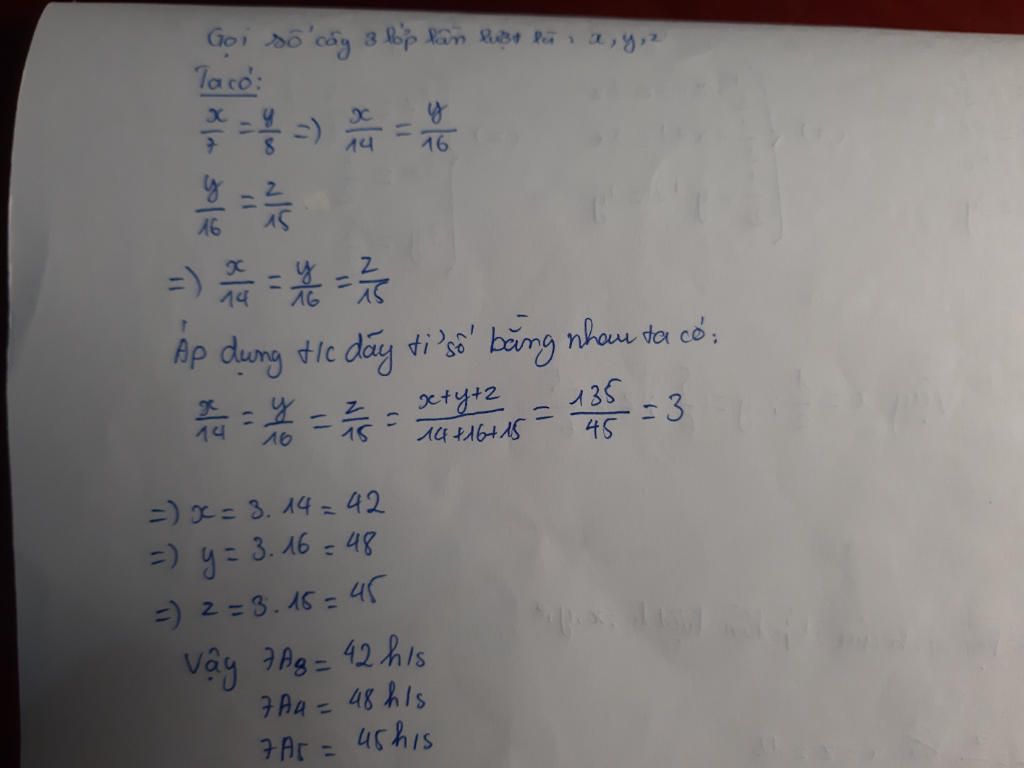 Gọi số cây 3 lớp lần lượt là: x, y, z
Ta có:
x/7 = y/8 => x/14 = y/16
y/16 = z/15
=> x/14 = y/16 = z/15
Áp dụng t/c dãy tỉ số bằng nhau ta có:
x/14 = y/16 = z/15 = x+y+z/14+16+15 = 135/45 = 3
=> x = 3. 14 = 42
=> y = 3. 16 = 48
=> z = 3. 15 = 45
Vậy 7A3 = 42 h/s
7A4 = 48 h/s
7A5 = 45 h/s